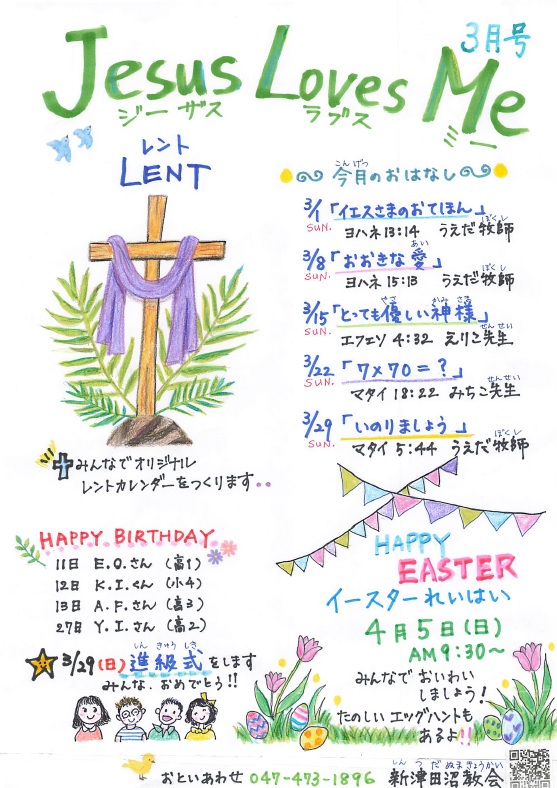 3月号
Jesus Loves Me
ジーザス ラブス ミー
レント
LENT
こんげつ
今月のおはなし
3/1「イエスさまのおてほん」
SUN. ヨハネ13:14 うえだ牧師
ぼくし
3/8「おおきな愛」
あい
SUN. ヨハネ15:13 うえだ牧師
ぼくし
3/15「とっても優しい神様」
やさ かみ さま
SUN. エフェソ4:32 えりこ先生
せんせい
3/22「7×70=?」
SUN. マタイ18:22 みちこ先生
せんせい
3/29「いのりましょう」
SUN. マタイ5:44 うえだ牧師
ぼくし
みんなでオリジナル
レントカレンダーをつくります
HAPPY BIRTHDAY
11日 E.O.さん (高1)
12日 K.I.くん (小4)
13日 A.F.さん (高3)
27日 Y.I.さん (高2)
しん きゅう しき
3/29(日)進級式をします
みんな、おめでとう!!
HAPPY
EASTER
イースターれいはい
4月5日(日)
AM9:30〜
みんなで おいわい
しましょう!
たのしい エッグハントも
あるよ!!
おといあわせ 047-473-1896
しんつだぬまきょうかい
新津田沼教会